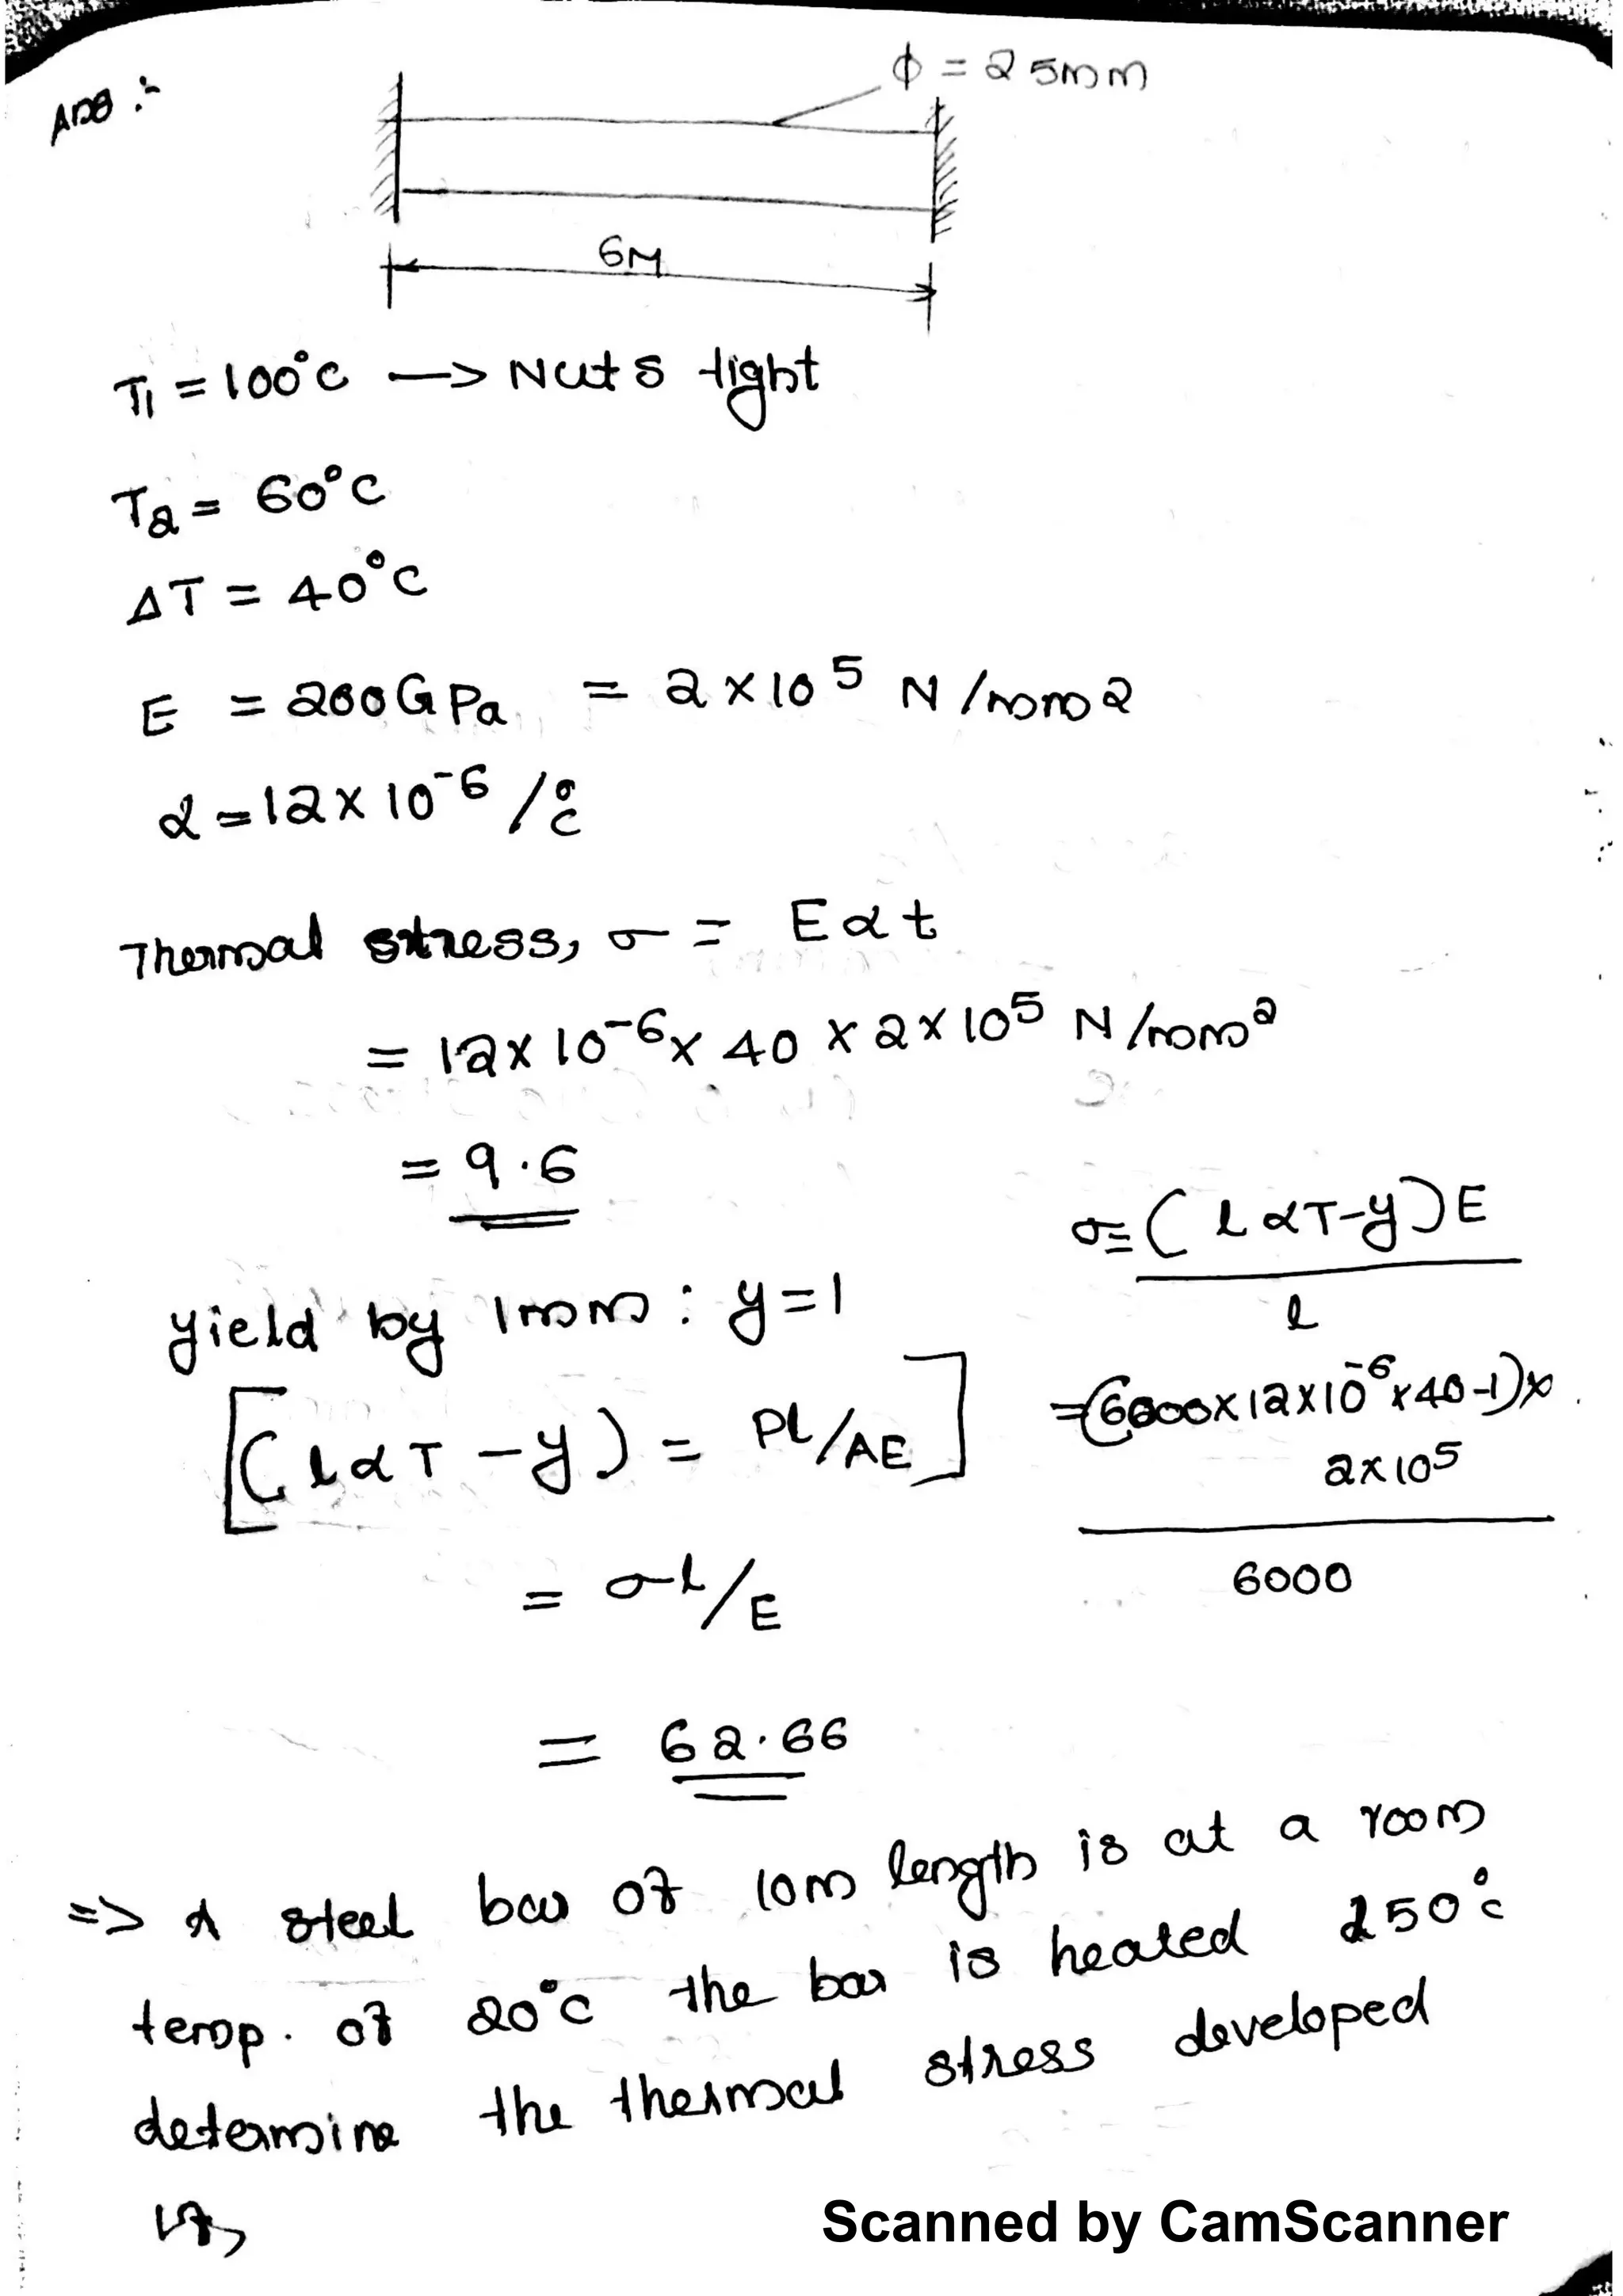 Ans :-
ϕ = 25mm
6M
T1 = 100°C → Nuts tight
T2 = 60°C
ΔT = 40°C
E = 200GPa = 2 × 10^5 N/mm2
α = 12 × 10^-6 /°C
Thermal stress, σ = Eαt
= 12 × 10^-6 × 40 × 2 × 10^5 N/mm²
= 9.6
yield by 1mm : y=1
[(lαT - y) = Pl/AE]
= σl/E
= 62.66
σ = (lαT-y)E
l
=(6000×12×10^-6×40-1)×
2×10^5
6000
=> A steel bar of 10m length is at a room
temp. of 20°C the bar is heated 250°C
determine the thermal stress developed
if,
Scanned by CamScanner